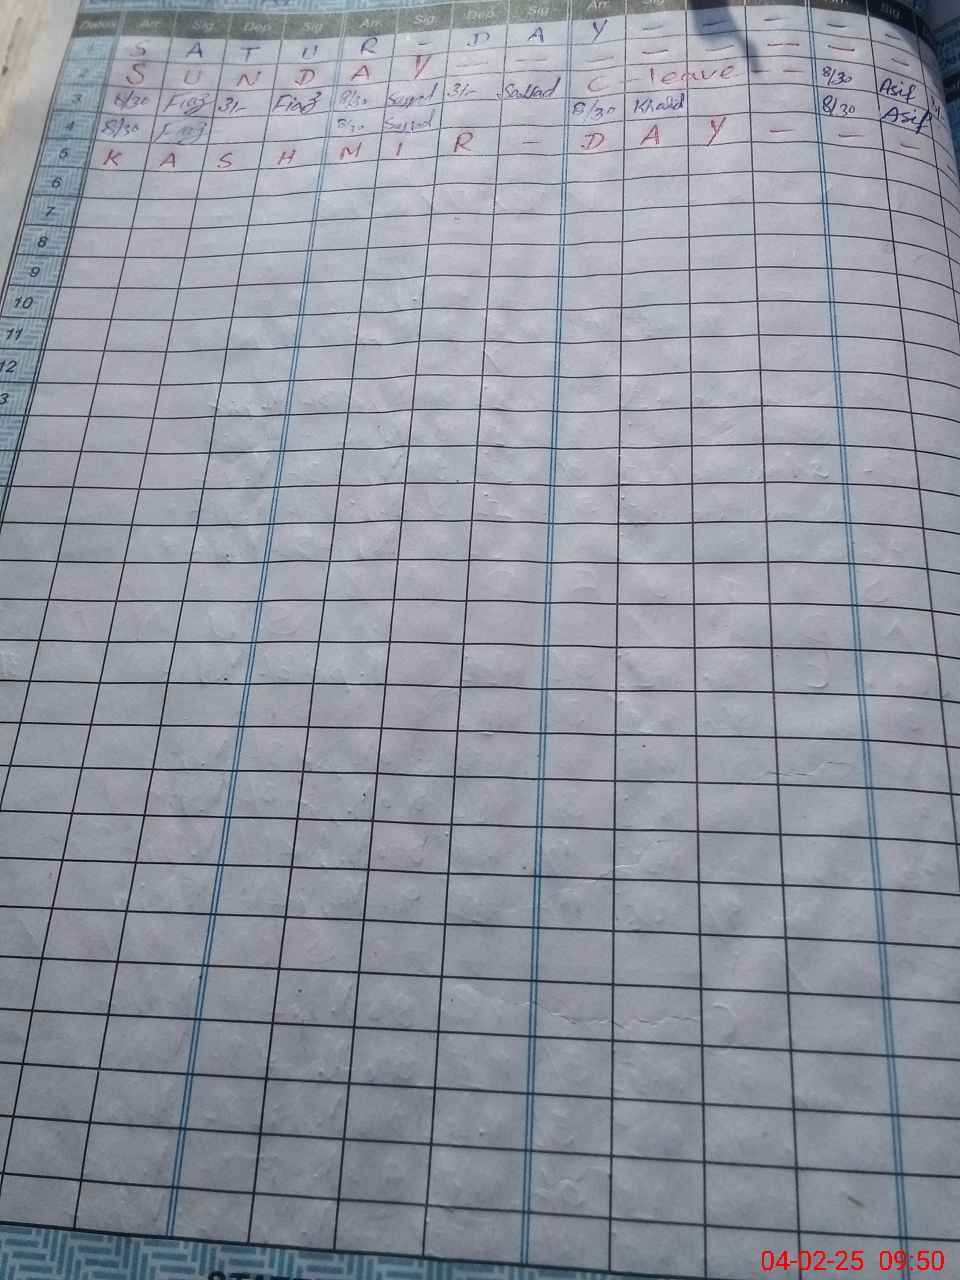 Dates Arr. Sig. Dep. Sig. Arr. Sig. Dep. Sig. Arr. Sig.
1 S A T U R - D A Y — — — — —
2 S U N D A Y — — — — — — — —
3 8/30 Fiaz 3/- Fiaz 8/30 Sajjad 3/- Sajjad C leave — — 8/30 Asif
4 8/30 Fiaz 8/30 Sajjad 8/30 Khalid 8/30 Asif
5 K A S H M I R — D A Y — — —
6
7
8
9
10
11
12
04-02-25 09:50